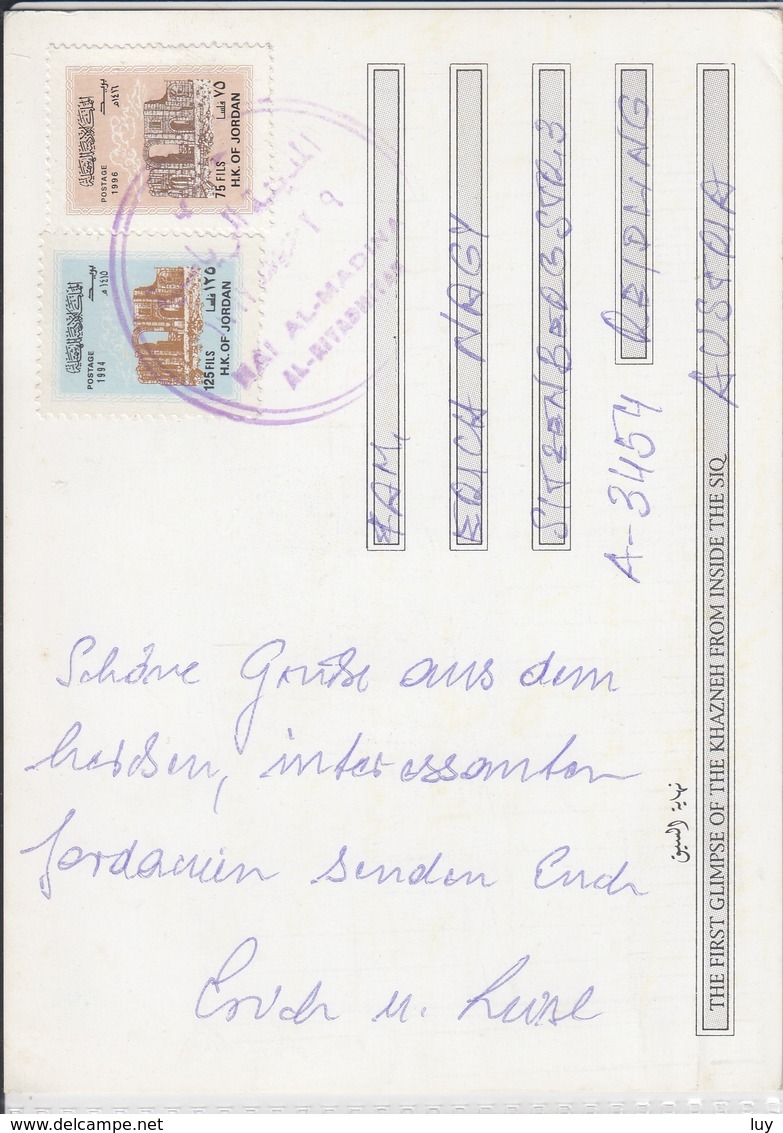 Schöne Grüße aus dem
heissen, interessanten
Jordanien senden Euch
Erich u. Luise
FAM.
ERICH NAGY
SITZENBERGSTR. 3
A-3454 REIDLING
AUSTRIA
نهاية السيق
THE FIRST GLIMPSE OF THE KHAZNEH FROM INSIDE THE SIQ
المملكة الأردنية الهاشمية
بريد
١٤١٦هـ
POSTAGE
1996
٧٥ فلسا
75 FILS
H.K. OF JORDAN
المملكة الأردنية الهاشمية
بريد
١٤١٥هـ
POSTAGE
1994
١٢٥ فلسا
125 FILS
H.K. OF JORDAN
HAI AL-MADINA
AL-RIYADHIYAH
www.delcampe.net
luy